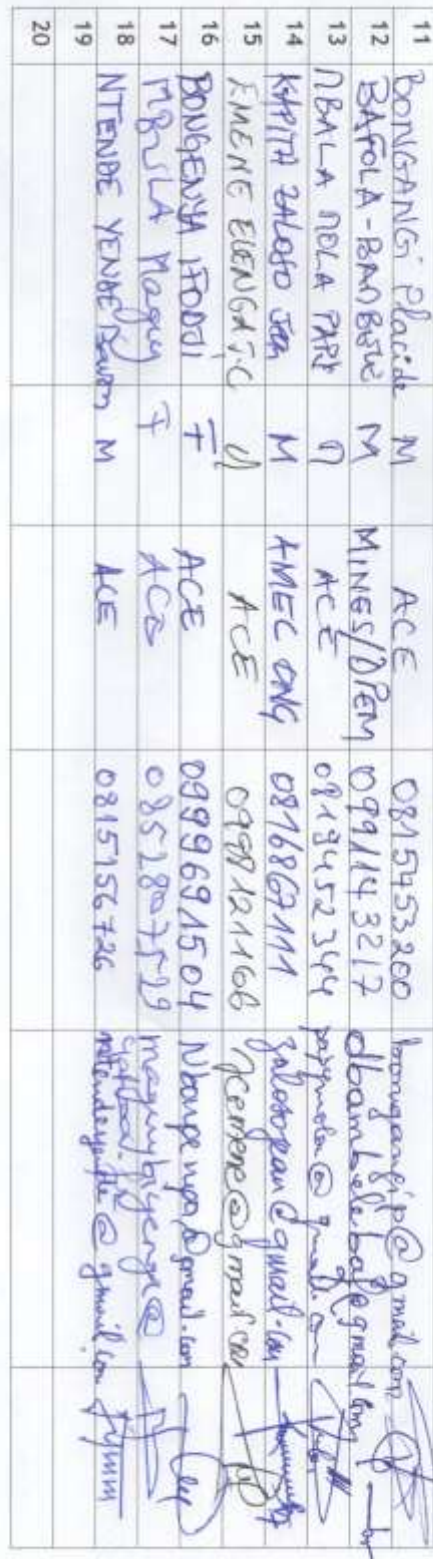 11 BONGANGI Placide M ACE 0815453200 bongangip@gmail.com
12 BAFOLA-BAMBELE M MINES/DPEM 0991143217 dbambelebaf@gmail.com
13 MBALA MOLA PAPY M ACE 0819452344 papymola@gmail.com
14 KAPITA ZALOSO Jean M AMEC ONG 0816867111 zalosojean@gmail.com
15 EMENE ELENGA J.C M ACE 0998121166 jcemene@gmail.com
16 BONGENYA IFODJI F ACE 0999691504
17 MBULA Maguy F ACE 0852807529
18 NTENDE YENDE M ACE 0815156726 ntendeyende@gmail.com
19
20